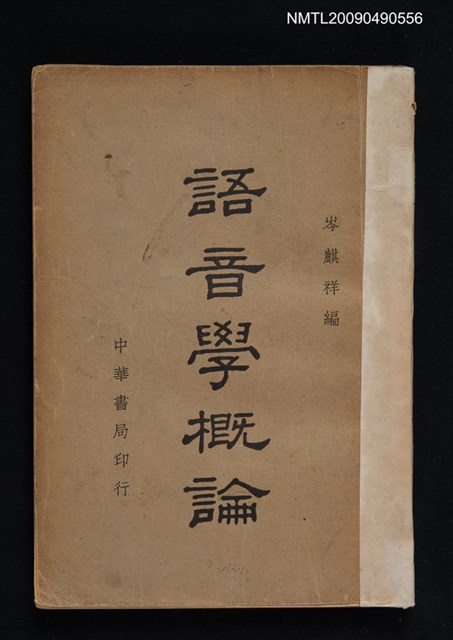 NMTL20090490556
岑麒祥編
語音學概論
中華書局印行